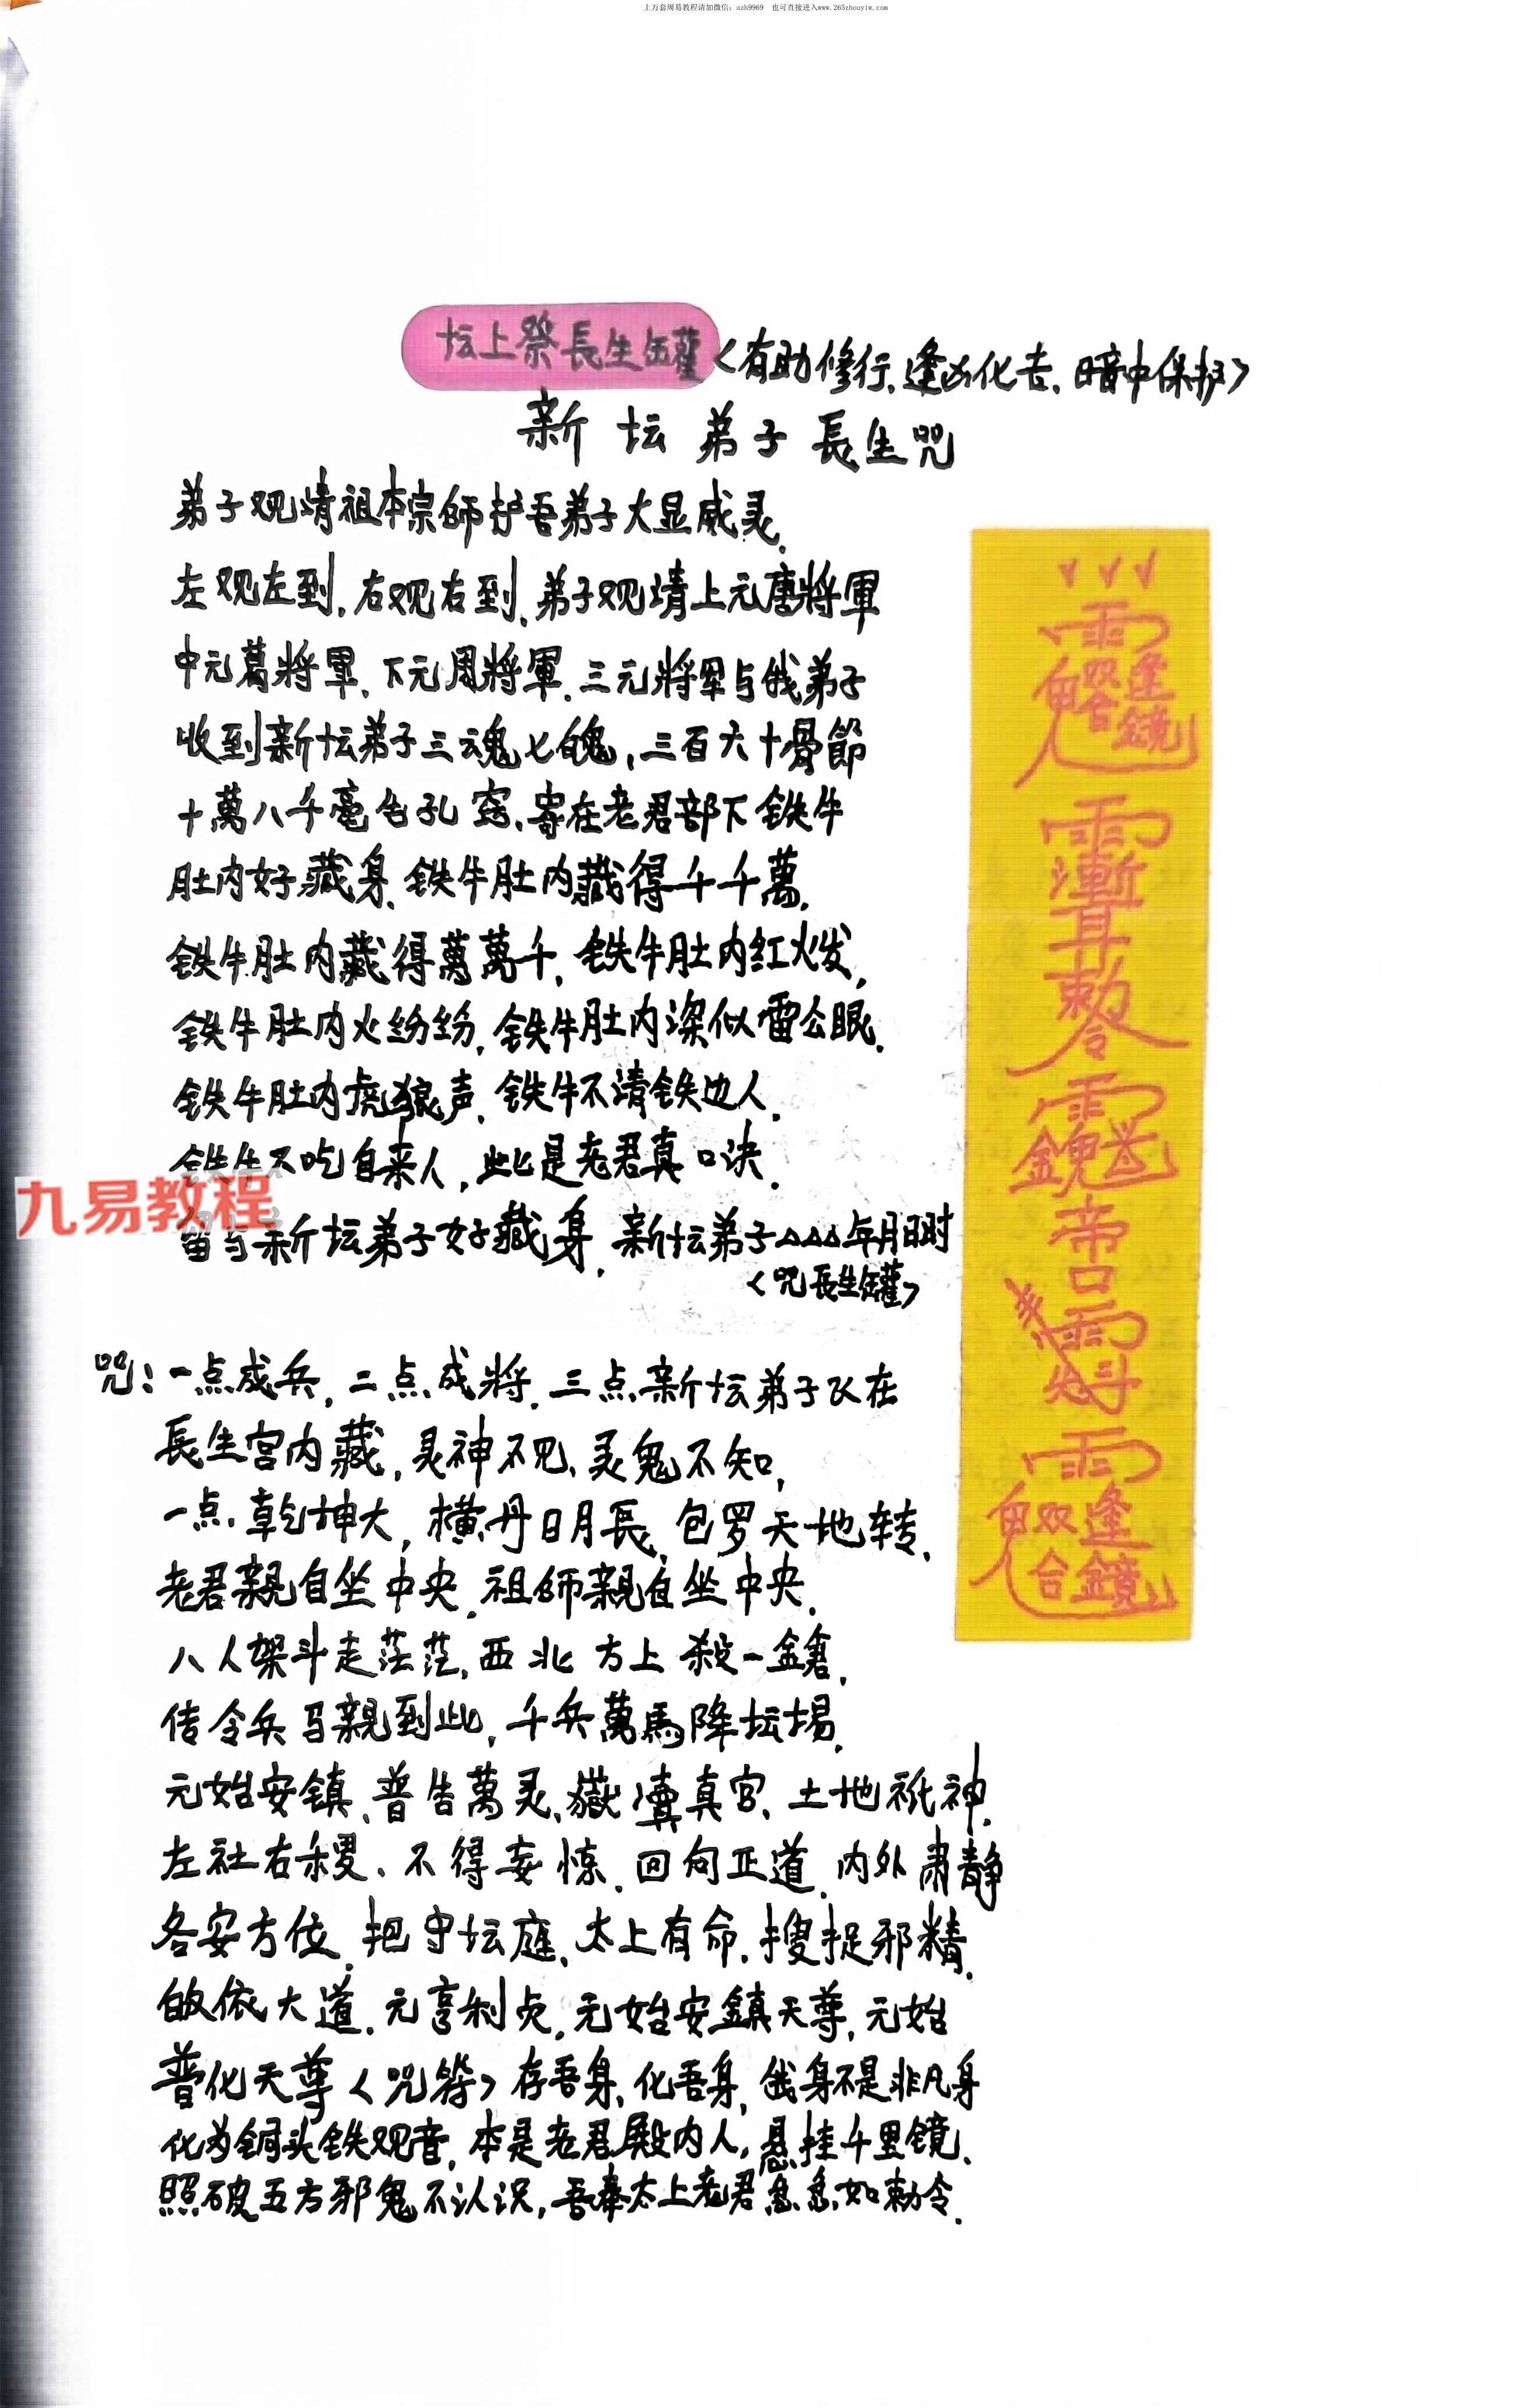 上万套周易教程请加微信：azh9969 也可直接进入www.265zhouyiw.com
坛上祭長生罐<有助修行、逢凶化吉、暗中保护>
新坛弟子長生咒
弟子观请祖本宗師护吾弟子大显威灵.
左观左到,右观右到,弟子观请上元唐將軍
中元葛將軍、下元周將軍.三元將軍与俄弟子
收到新坛弟子三魂七魄,三百六十骨節
十萬八千毫毛孔窍.寄在老君部下铁牛
肚内好藏身.铁牛肚内藏得千千萬.
铁牛肚内藏得萬萬千,铁牛肚内红火发,
铁牛肚内火纷纷,铁牛肚内深似雷公眼.
铁牛肚内虎狼声.铁牛不请铁边人.
铁牛不吃自来人,此是老君真口诀.
九易教程
留与新坛弟子好藏身,新坛弟子△△△年月日时
<咒長生罐>
咒:一点成兵,二点成將.三点新坛弟子飞在
長生宫内藏,灵神不见、灵鬼不知,
一点乾坤大,横丹日月長,包罗天地转.
老君親自坐中央.祖師親自坐中央.
八人架斗走茫茫,西北方上殺一鎗.
传令兵马親到此,千兵萬馬降坛場.
元始安镇、普告萬灵、嶽瀆真官、土地祇神.
左社右稷、不得妄惊.回向正道.内外肃静
各安方位.把守坛庭、太上有命.搜捉邪精.
皈依大道.元亨利贞,元始安鎮天尊,元始
普化天尊<咒符>存吾身,化吾身,俄身不是非凡身
化为铜头铁观音,本是老君殿内人,悬挂千里镜、
照破五方邪鬼不认识,吾奉太上老君急急如勅令.
雨
雨
漸
耳
勅令
雨
帝
口
雨
雨
鬼双逢
合鏡